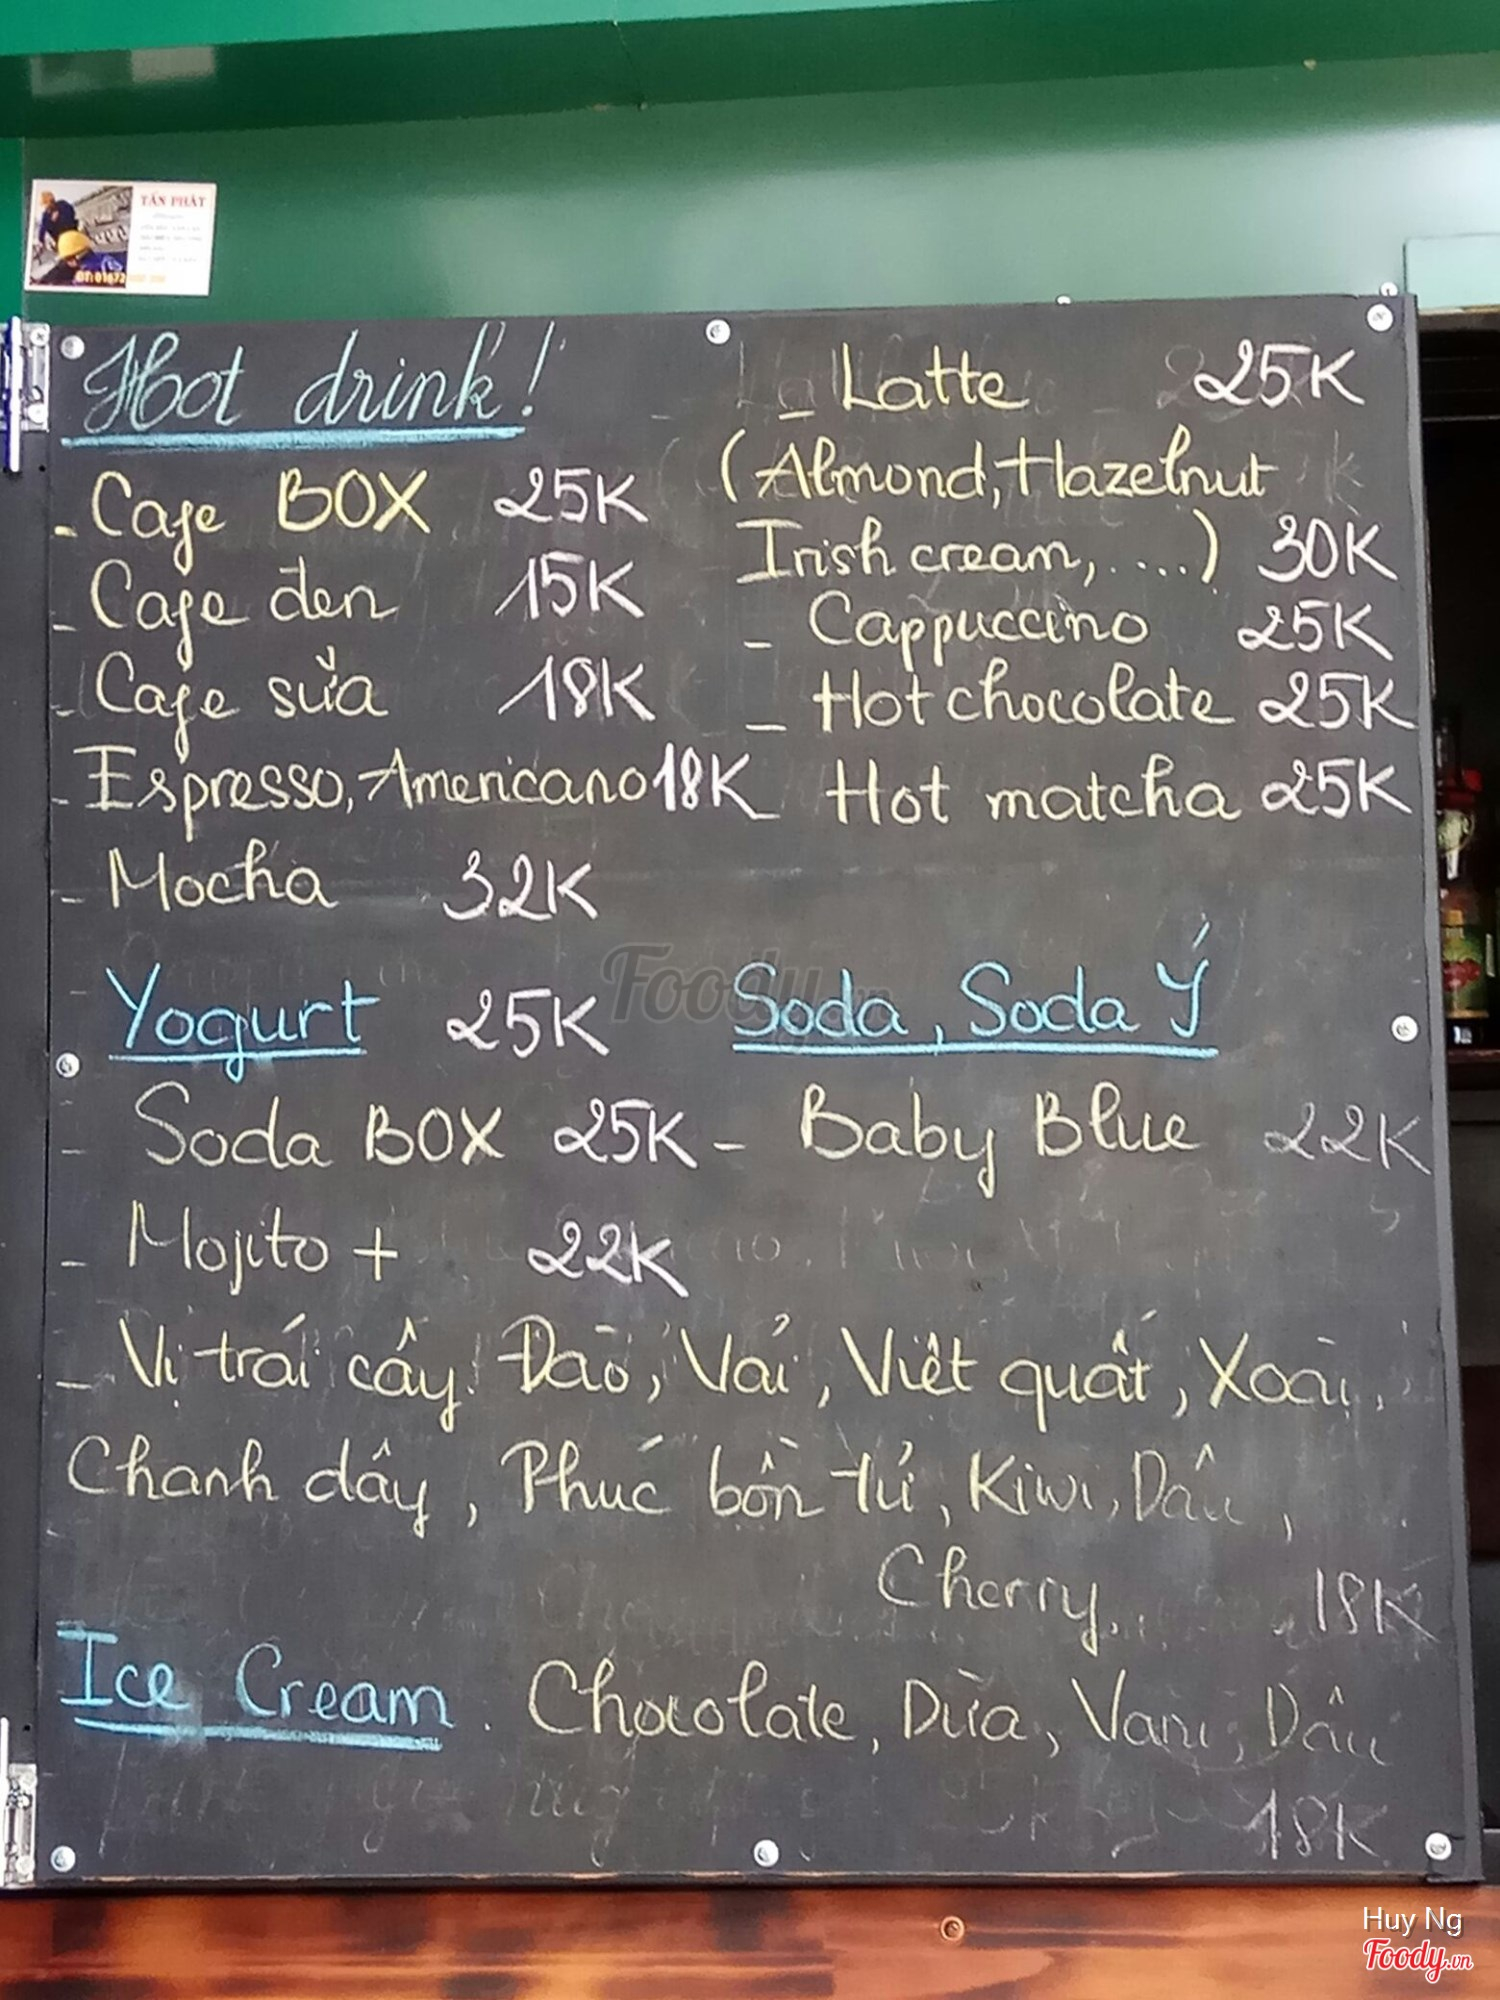 TẤN PHÁT
ĐT: 01672
Hot drink!
- Cafe BOX 25K
- Cafe đen 15K
- Cafe sữa 18K
- Espresso, Americano 18K
- Mocha 32K
- Latte 25K
(Almond, Hazelnut
Irish cream, ....) 30K
- Cappuccino 25K
- Hot chocolate 25K
- Hot matcha 25K
Yogurt 25K
Soda, Soda Ý
- Soda BOX 25K
- Baby Blue 22K
- Mojito + 22K
- Vị trái cây: Đào, Vải, Việt quất, Xoài,
Chanh dây, Phúc bồn tử, Kiwi, Dâu,
Cherry... 18K
Ice Cream. Chocolate, Dừa, Vani, Dâu
18K
Foody.vn
Huy Ng
Foody.vn